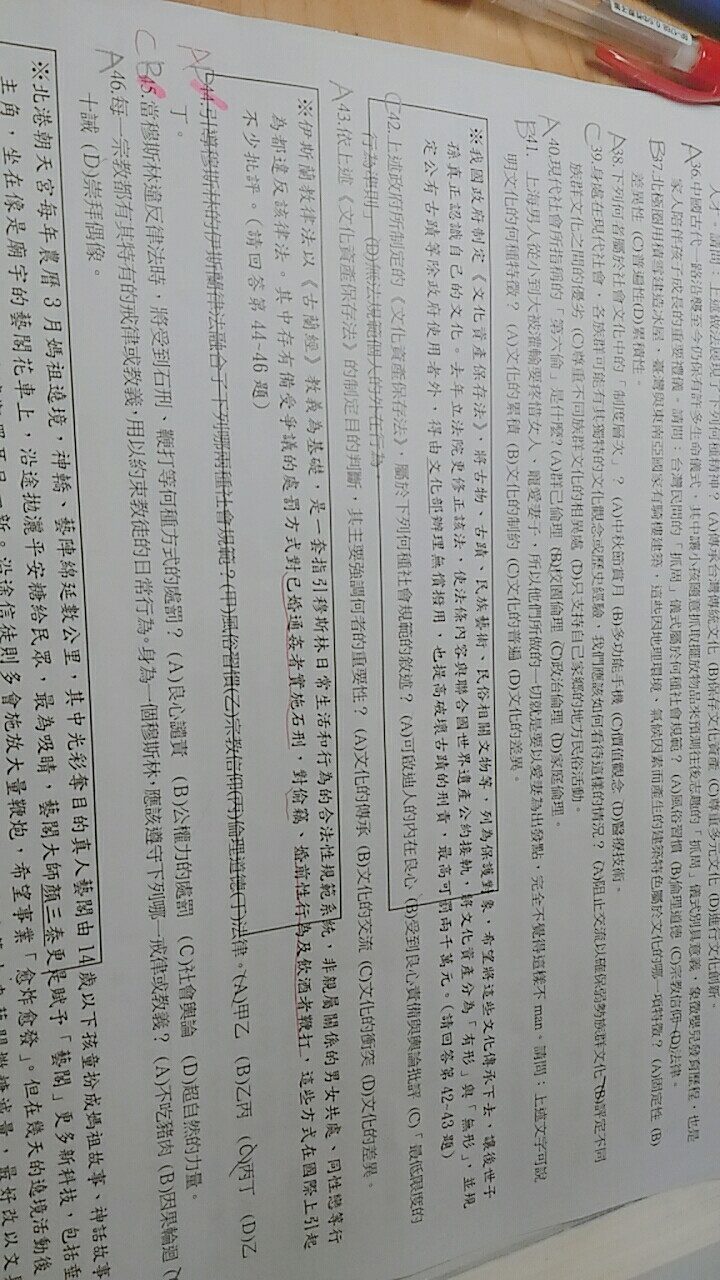 人才。請問：上述做法展現了下列何種精神？(A)傳承台灣傳統文化 (B)保存文化資產 (C)尊重多元文化 (D)進行文化創新。
A36.中國古代一路沿襲至今仍保有許多生命儀式，其中讓小孩隨意抓取擺放物品來預測往後志趣的「抓周」儀式別具意義，象徵嬰兒發育歷程，也是
家人陪伴孩子成長的重要禮儀。請問：台灣民間的「抓周」儀式屬於何種社會規範？(A)風俗習慣 (B)倫理道德 (C)宗教信仰 (D)法律。
B37.北極圈用積雪建造冰屋，臺灣與東南亞國家有騎樓建築，這些因地理環境、氣候因素而產生的建築特色屬於文化的哪一項特徵？(A)固定性 (B)
差異性 (C)普遍性(D)累積性。
A38.下列何者屬於社會文化中的「制度層次」？(A)中秋節賞月 (B)多功能手機 (C)價值觀念 (D)醫療技術。
C39.身處在現代社會，各族群可能有其獨特的文化觀念或歷史經驗，我們應該如何看待這樣的情況？(A)阻止交流以確保弱勢族群文化 (B)評定不同
族群文化之間的優劣 (C)尊重不同族群文化的相異處 (D)只支持自己家鄉的地方民俗活動。
A40.現代社會所指稱的「第六倫」是什麼？(A)群己倫理 (B)校園倫理 (C)政治倫理 (D)家庭倫理。
B41.上海男人從小到大被灌輸要疼惜女人、寵愛妻子，所以他們所做的一切就是要以愛妻為出發點，完全不覺得這樣不 man。請問：上述文字可說
明文化的何種特徵？ (A)文化的累積 (B)文化的制約 (C)文化的普遍 (D)文化的差異。
※我國政府制定《文化資產保存法》，將古物、古蹟、民族藝術、民俗相關文物等，列為保護對象，希望將這些文化傳承下去，讓後世子
孫真正認識自己的文化。去年立法院更修正該法，使法條內容與聯合國世界遺產公約接軌，將文化資產分為「有形」與「無形」，並規
定公有古蹟等除政府使用者外，得由文化部辦理無償撥用，也提高破壞古蹟的刑責，最高可罰兩千萬元。(請回答第 42-43 題)
C42.上述政府所制定的《文化資產保存法》，屬於下列何種社會規範的敘述？ (A)可啟迪人的內在良心 (B)受到良心責備與輿論批評 (C)「最低限度的
行為準則」 (D)無法規範個人的外在行為。
A43.依上述《文化資產保存法》的制定目的判斷，其主要強調何者的重要性？ (A)文化的傳承 (B)文化的交流 (C)文化的衝突 (D)文化的差異。
※伊斯蘭教律法以《古蘭經》教義為基礎，是一套指引穆斯林日常生活和行為的合法性規範系統，非親屬關係的男女共處、同性戀等行
為都違反該律法。其中存有備受爭議的處罰方式對已婚通姦者實施石刑，對偷竊、婚前性行為及飲酒者鞭打，這些方式在國際上引起
不少批評。(請回答第 44-46 題)
44.引導穆斯林的伊斯蘭律法融合了下列哪兩種社會規範？(甲)風俗習慣(乙)宗教信仰(丙)倫理道德(丁)法律。 (A)甲乙 (B)乙丙 (C)丙丁 (D)乙
丁。
C45.當穆斯林違反律法時，將受到石刑、鞭打等何種方式的處罰？ (A)良心譴責 (B)公權力的處罰 (C)社會輿論 (D)超自然的力量。
A46.每一宗教都有其特有的戒律或教義，用以約束教徒的日常行為。身為一個穆斯林，應該遵守下列哪一戒律或教義？ (A)不吃豬肉 (B)因果輪迴
十誡 (D)崇拜偶像。
※北港朝天宮每年農曆 3 月媽祖遶境，神轎、藝陣綿延數公里，其中光彩奪目的真人藝閣由 14 歲以下孩童扮成媽祖故事、神話故事
主角，坐在像是廟宇的藝閣花車上，沿途拋灑平安糖給民眾，最為吸睛，藝閣大師顏三泰更是賦予「藝閣」更多新科技，包括
沿途信徒則多會施放大量鞭炮，希望事業「愈炸愈發」。但在幾天的遶境活動後